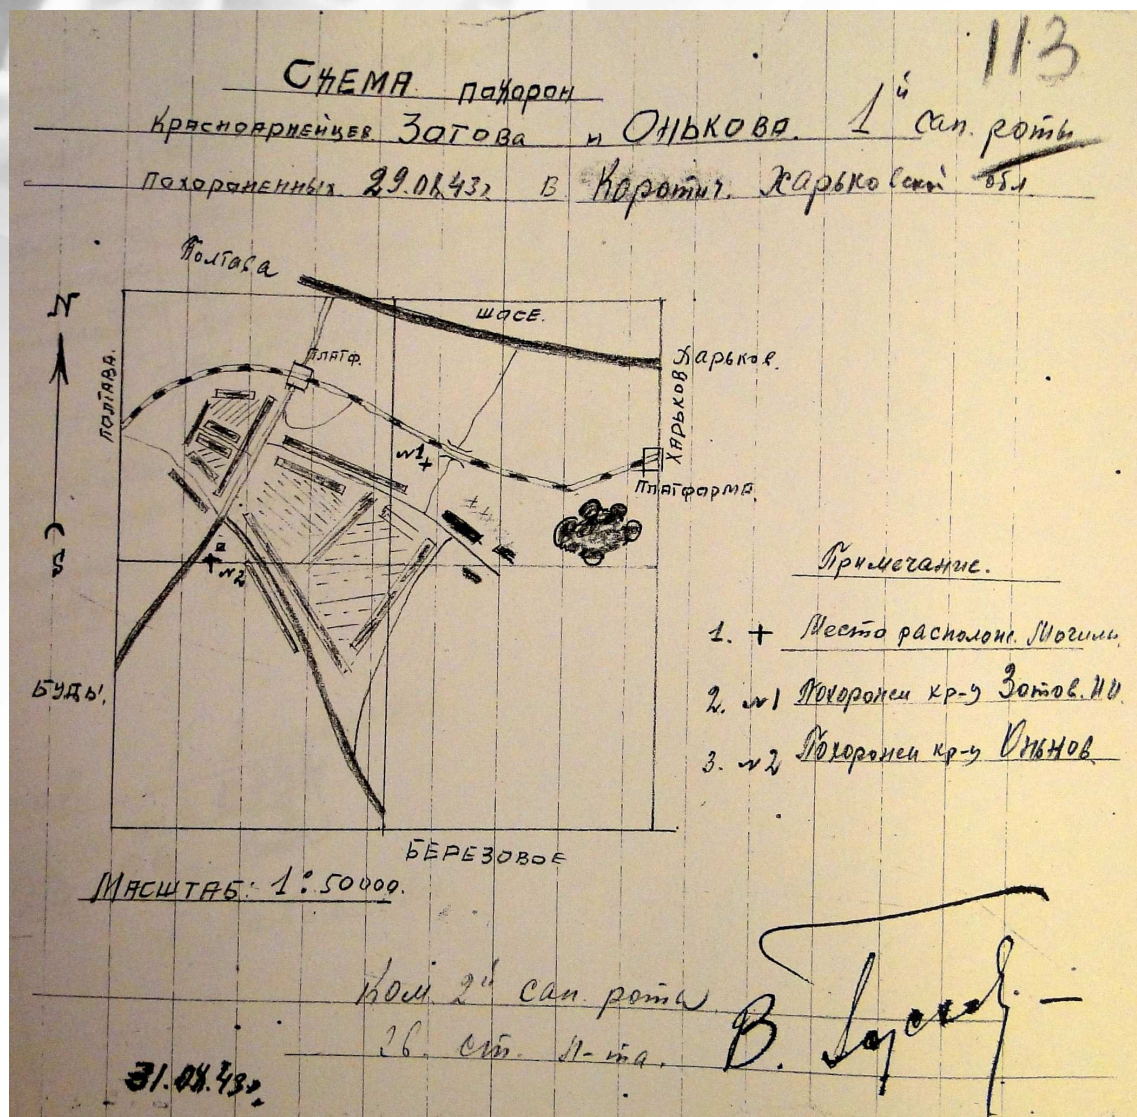 113
СХЕМА похорон
Красноармейцев Затова и Онькова. 1й сап. роты
похороненных 29.08.43г в Коротич. Харьковской обл
Полтава
N
шосе.
Платф.
Харьков.
Полтава.
Харьков
№1
Платформа.
№2
S
Примечание.
1. + Место располож. Могилы
Буды.
2. №1 Похоронен кр-ц Зотов.
3. №2 Похоронен кр-ц Оньков
Березовое
Масштаб: 1:50000.
Ком. 2й сап. роты
ст. Л-та.
В.
31.08.43г.